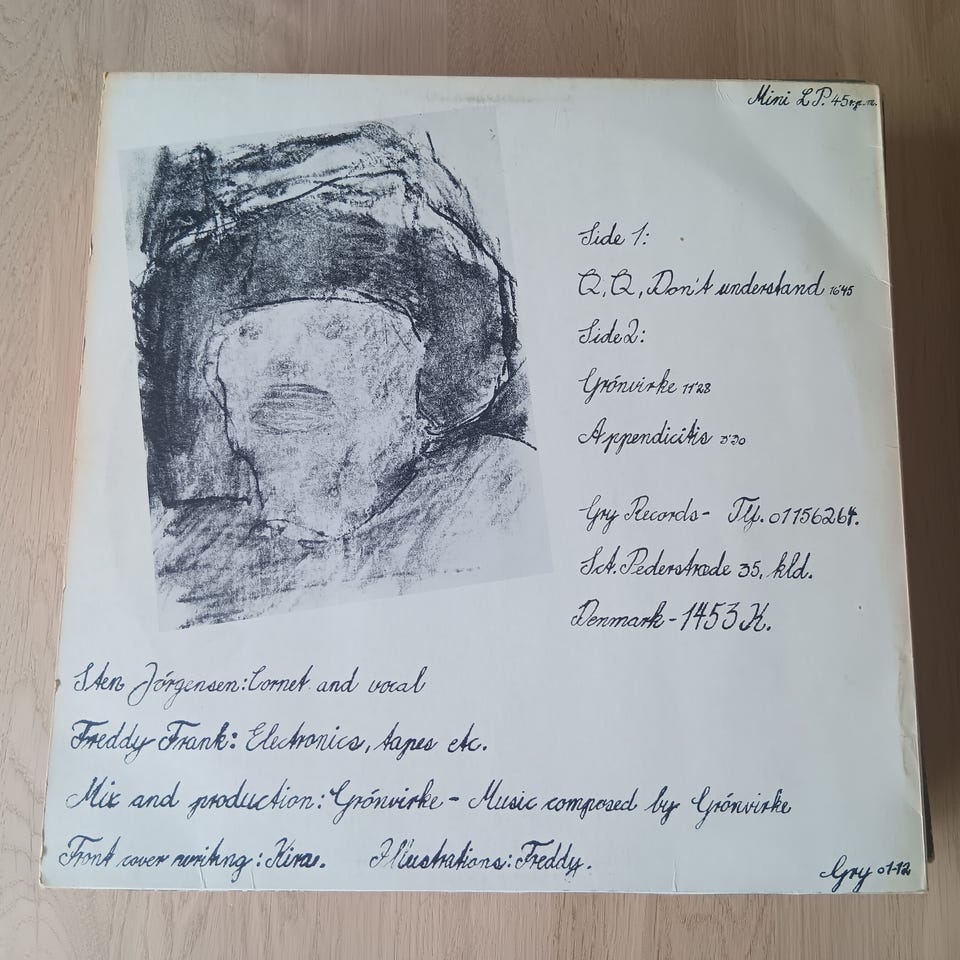 Mini LP. 45 r.p.m.
Side 1:
Q, Q, Don't understand 16'45
Side 2:
Grónvirke 11'28
Appendicitis
Gry Records - Tlf. 01156264.
Sct. Pederstræde 35, kld.
Denmark - 1453 K.
Sten Jórgensen: Cornet and vocal
Freddy Frank: Electronics, tapes etc.
Mix and production: Grónvirke - Music composed by Grónvirke
Front cover writing: Kira. Illustrations: Freddy.
Gry 01-12